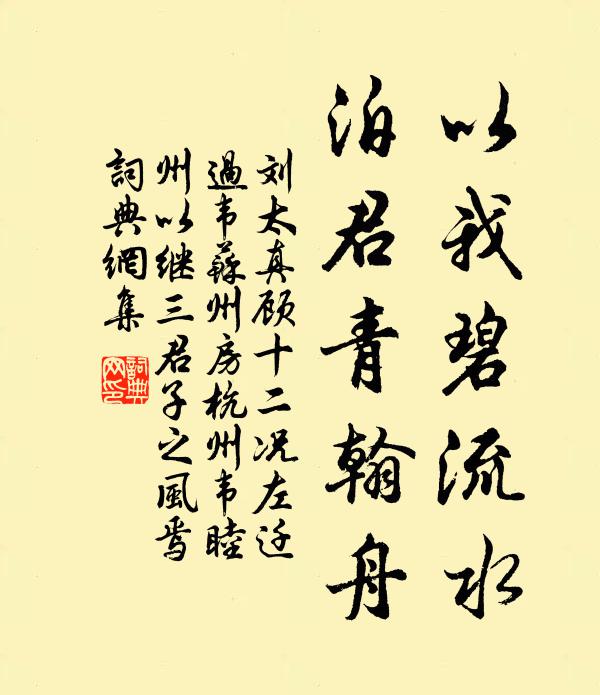 以我碧流水
泊君青翰舟
刘太真顾十二况左迁
過韦蘇州房杭州韦睦
州以继三君子之風焉
詞典網集
詞典
网印